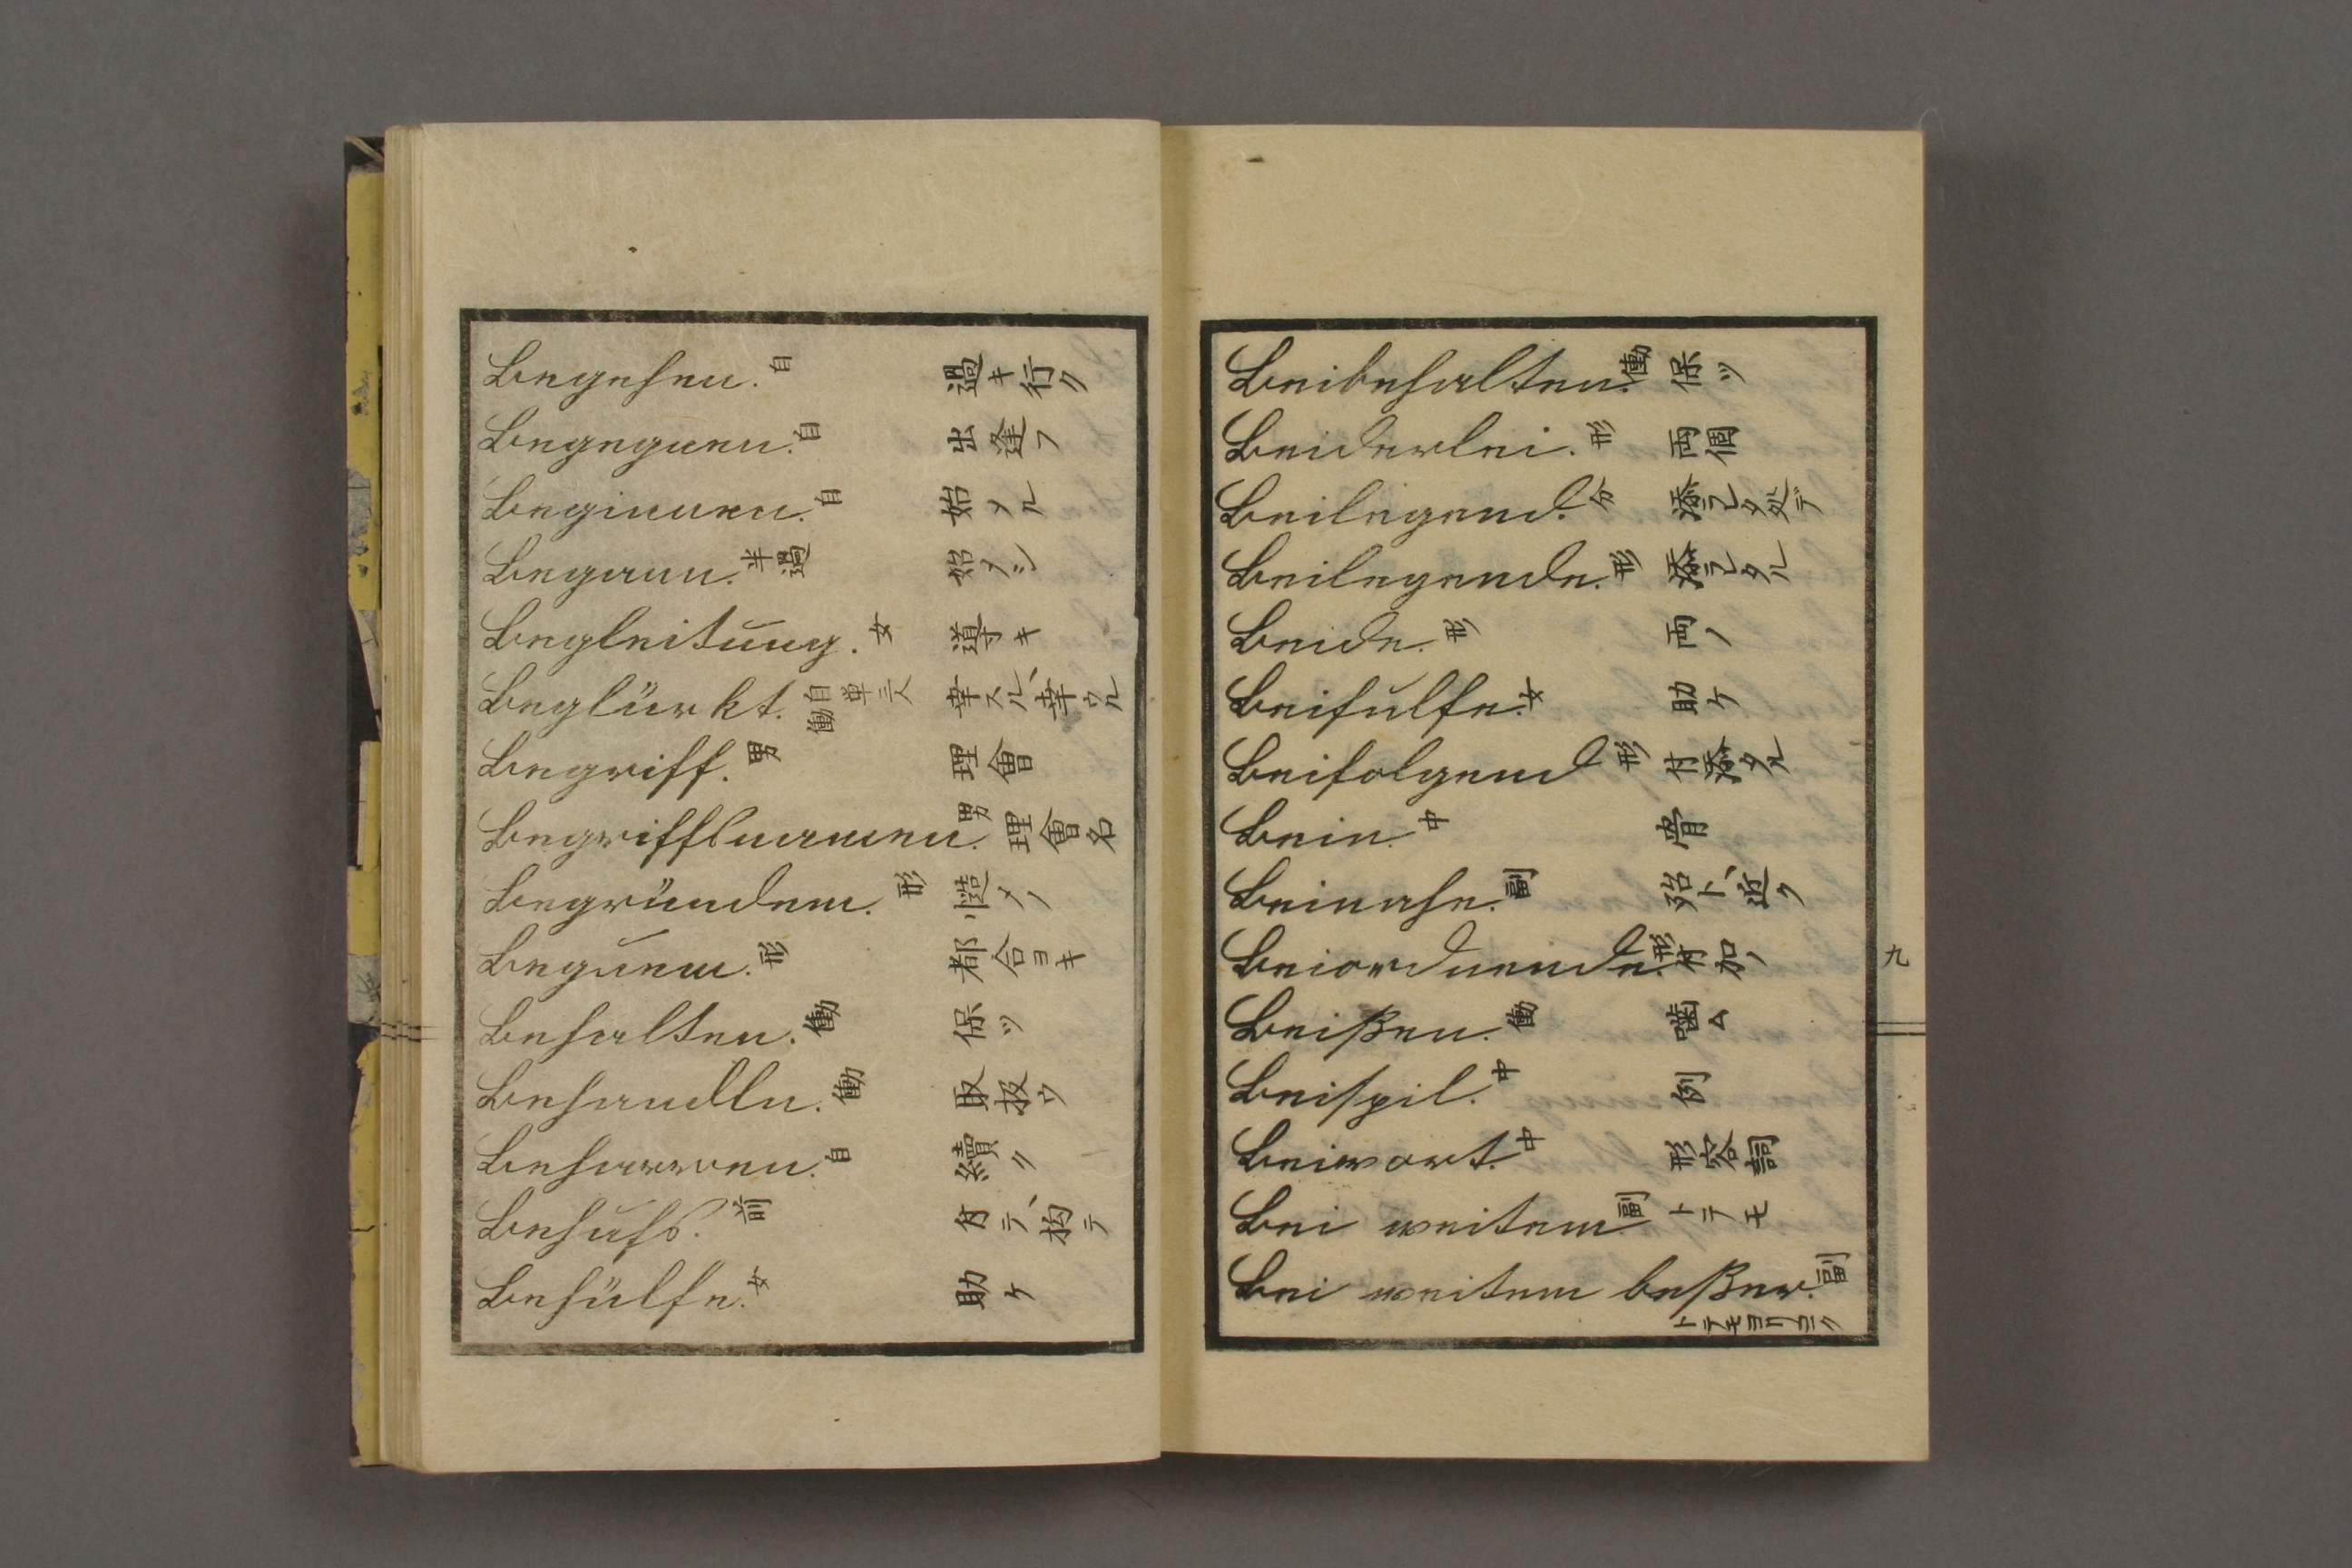 Begehen. 自 過キ行ク
Begegnen. 自 出逢フ
Beginnen. 自 始メル
Begann. 半過 始メシ
Begleitung. 女 導キ
Beglückt. 自働 単三人 幸スル、幸ウル
Begriff. 男 理會
Begriffsnamen. 男 理會名
Begründem. 形 慥メノ
Beguem. 形 都合ヨキ
Behalten. 働 保ツ
Behandln. 働 取扱ウ
Beharren. 自 續ク
Behufs. 前 付テ、拘テ
Behülfe. 女 助ケ
Beibehalten. 働 保ツ
Beiderlei. 形 両個
Beilegend. 分 添ヘタ処デ
Beilegende. 形 添ヘタル
Beide. 形 両ノ
Beihulfe. 女 助ケ
Beifolgend 形 付添タル
Bein. 中 骨
Beinahe. 副 殆ト、近ク
Beiordnende. 形 付加ノ
Beißen. 働 噛ム
Beispil. 中 例
Beiwort. 中 形容詞
Bei weitem 副 トテモ
Bei weitem beßer. 副
トテモヨリヨク
九